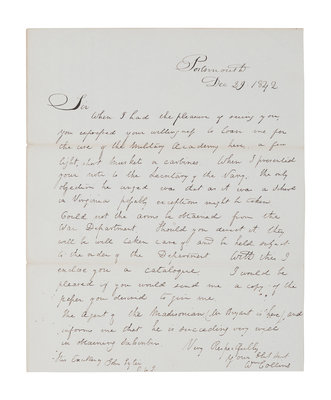 Portsmouth
Dec 29 1842
Sir
When I had the pleasure of seeing you,
you expressed your willingness to loan me for
the use of the Military Academy here, a few
light, short muskets or carbines. When I presented
your note to the Secretary of the Navy. The only
objection he urged was that as it was a School
in Virginia possibly exceptions might be taken
Could not the arms be obtained from the
War Department Should you direct it, they
will be well taken care of and be held subject
to the order of the Department With this I
enclose you a catalogue. I would be
pleased if you would send me a copy of the
paper you desired to give me.
The Agent of the Madisonian (Mr Bryant is here) and
informs me that he is succeeding very well
in obtaining subscribers.
Very Respectfully
Your Obt Svt
Wm Collins
His Excellency John Tyler